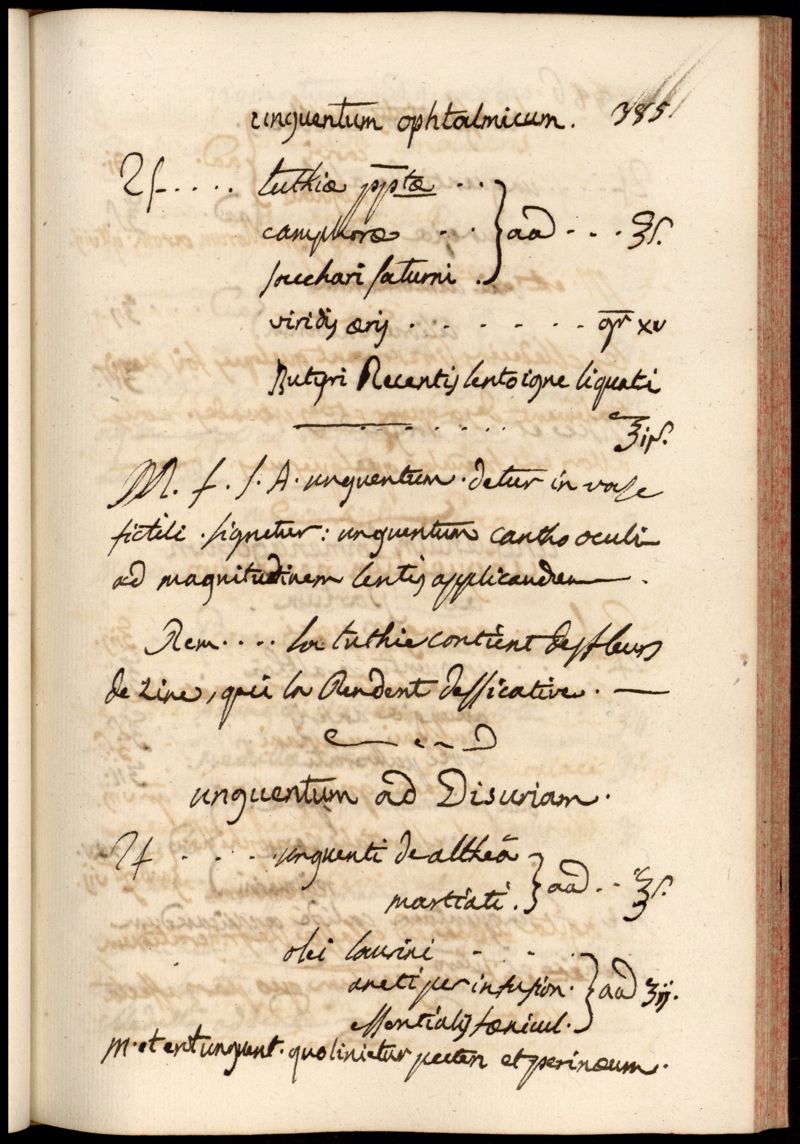 unguentum ophtalmicum. 385
♃.... tuthiæ pptæ ...
camphoræ ... } aa ... ʒſ.
sacchari saturni .
viridis æris ....... gr xv
Butyri Recentis lento igne liquati
ʒiſ.
M. f. S. A. unguentum. detur in vase
fictili. signetur: unguentum cantho oculi
ad magnitudinem lentis applicandum.
Rem.... la tuthie contient des fleurs
de Zinc, qui la Rendent dessicative.
unguentum ad Disuriam.
♃ .... unguenti de altheâ
martiati. } aa .. ℥ſ.
olei laurini ...
aneti per infusion. } aa ʒij.
essentialis fœnicul.
M. et erit unguent. quo linietur pecten et perinæum.